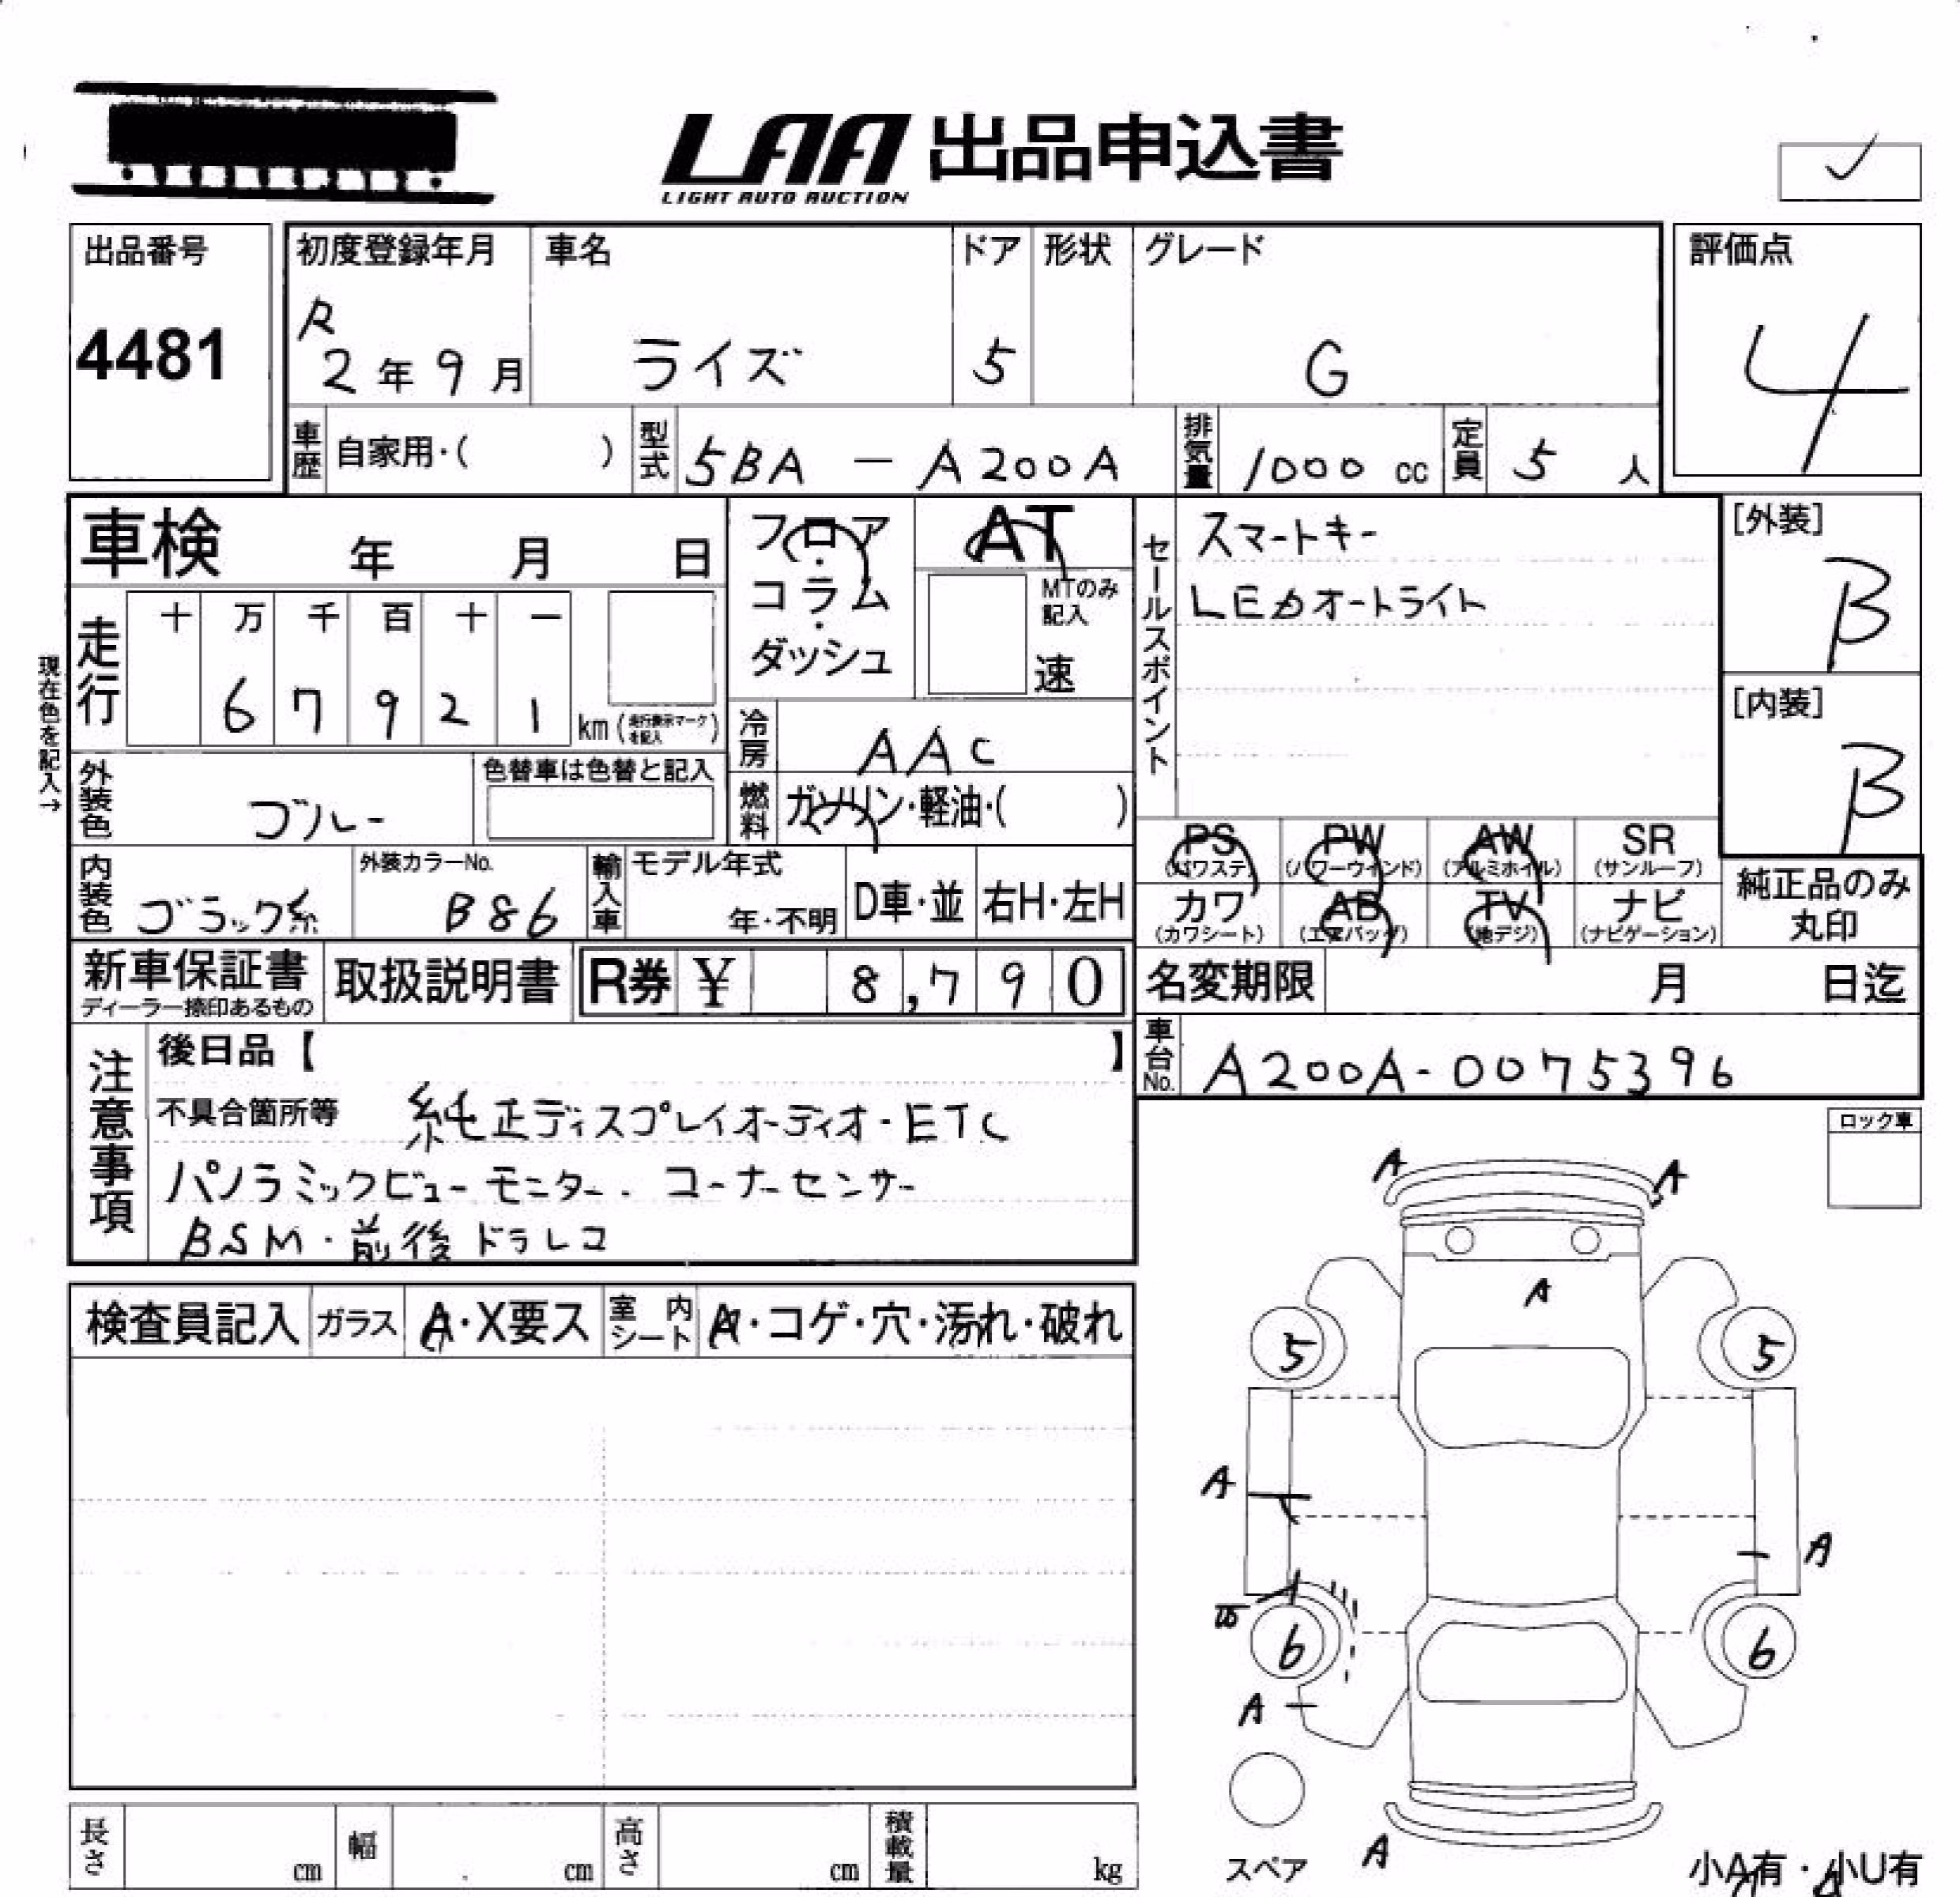 LAA 出品申込書
LIGHT AUTO AUCTION
出品番号
4481
初度登録年月
R
2年9月
車名
ライズ
ドア
5
形状
グレード
G
評価点
4
車歴 自家用・( )
型式 5BA - A200A
排気量 1000 cc
定員 5 人
車検 年 月 日
フロア・コラム・ダッシュ
AT
MTのみ記入
速
セールスポイント
スマートキー
LEDオートライト
[外装]
B
[内装]
B
現在色を記入→
走行 十 万 千 百 十 一
6 7 9 2 1 km (走行表示マークを記入)
冷房 AAC
燃料 ガソリン・軽油・( )
外装色 ブルー
色替車は色替と記入
内装色 ブラック系
外装カラーNo.
B86
輸入車 モデル年式
年・不明
D車・並 右H・左H
PS (パワステ) PW (パワーウィンド) AW (アルミホイル) SR (サンルーフ)
カワ (カワシート) AB (エアバッグ) TV (地デジ) ナビ (ナビゲーション)
純正品のみ丸印
新車保証書
ディーラー捺印あるもの
取扱説明書
R券 ¥ 8,790
名変期限 月 日迄
車台No. A200A-0075396
注意事項
後日品【 】
不具合箇所等 純正ディスプレイオーディオ・ETC
パノラミックビューモニター・コーナーセンサー
BSM・前後ドラレコ
ロック車
検査員記入 ガラス A・X要ス 室内シート A・コゲ・穴・汚れ・破れ
A
A
A
5
5
A
A
6
6
A
A
スペア
小A有・小U有
長さ cm 幅 cm 高さ cm 積載量 kg